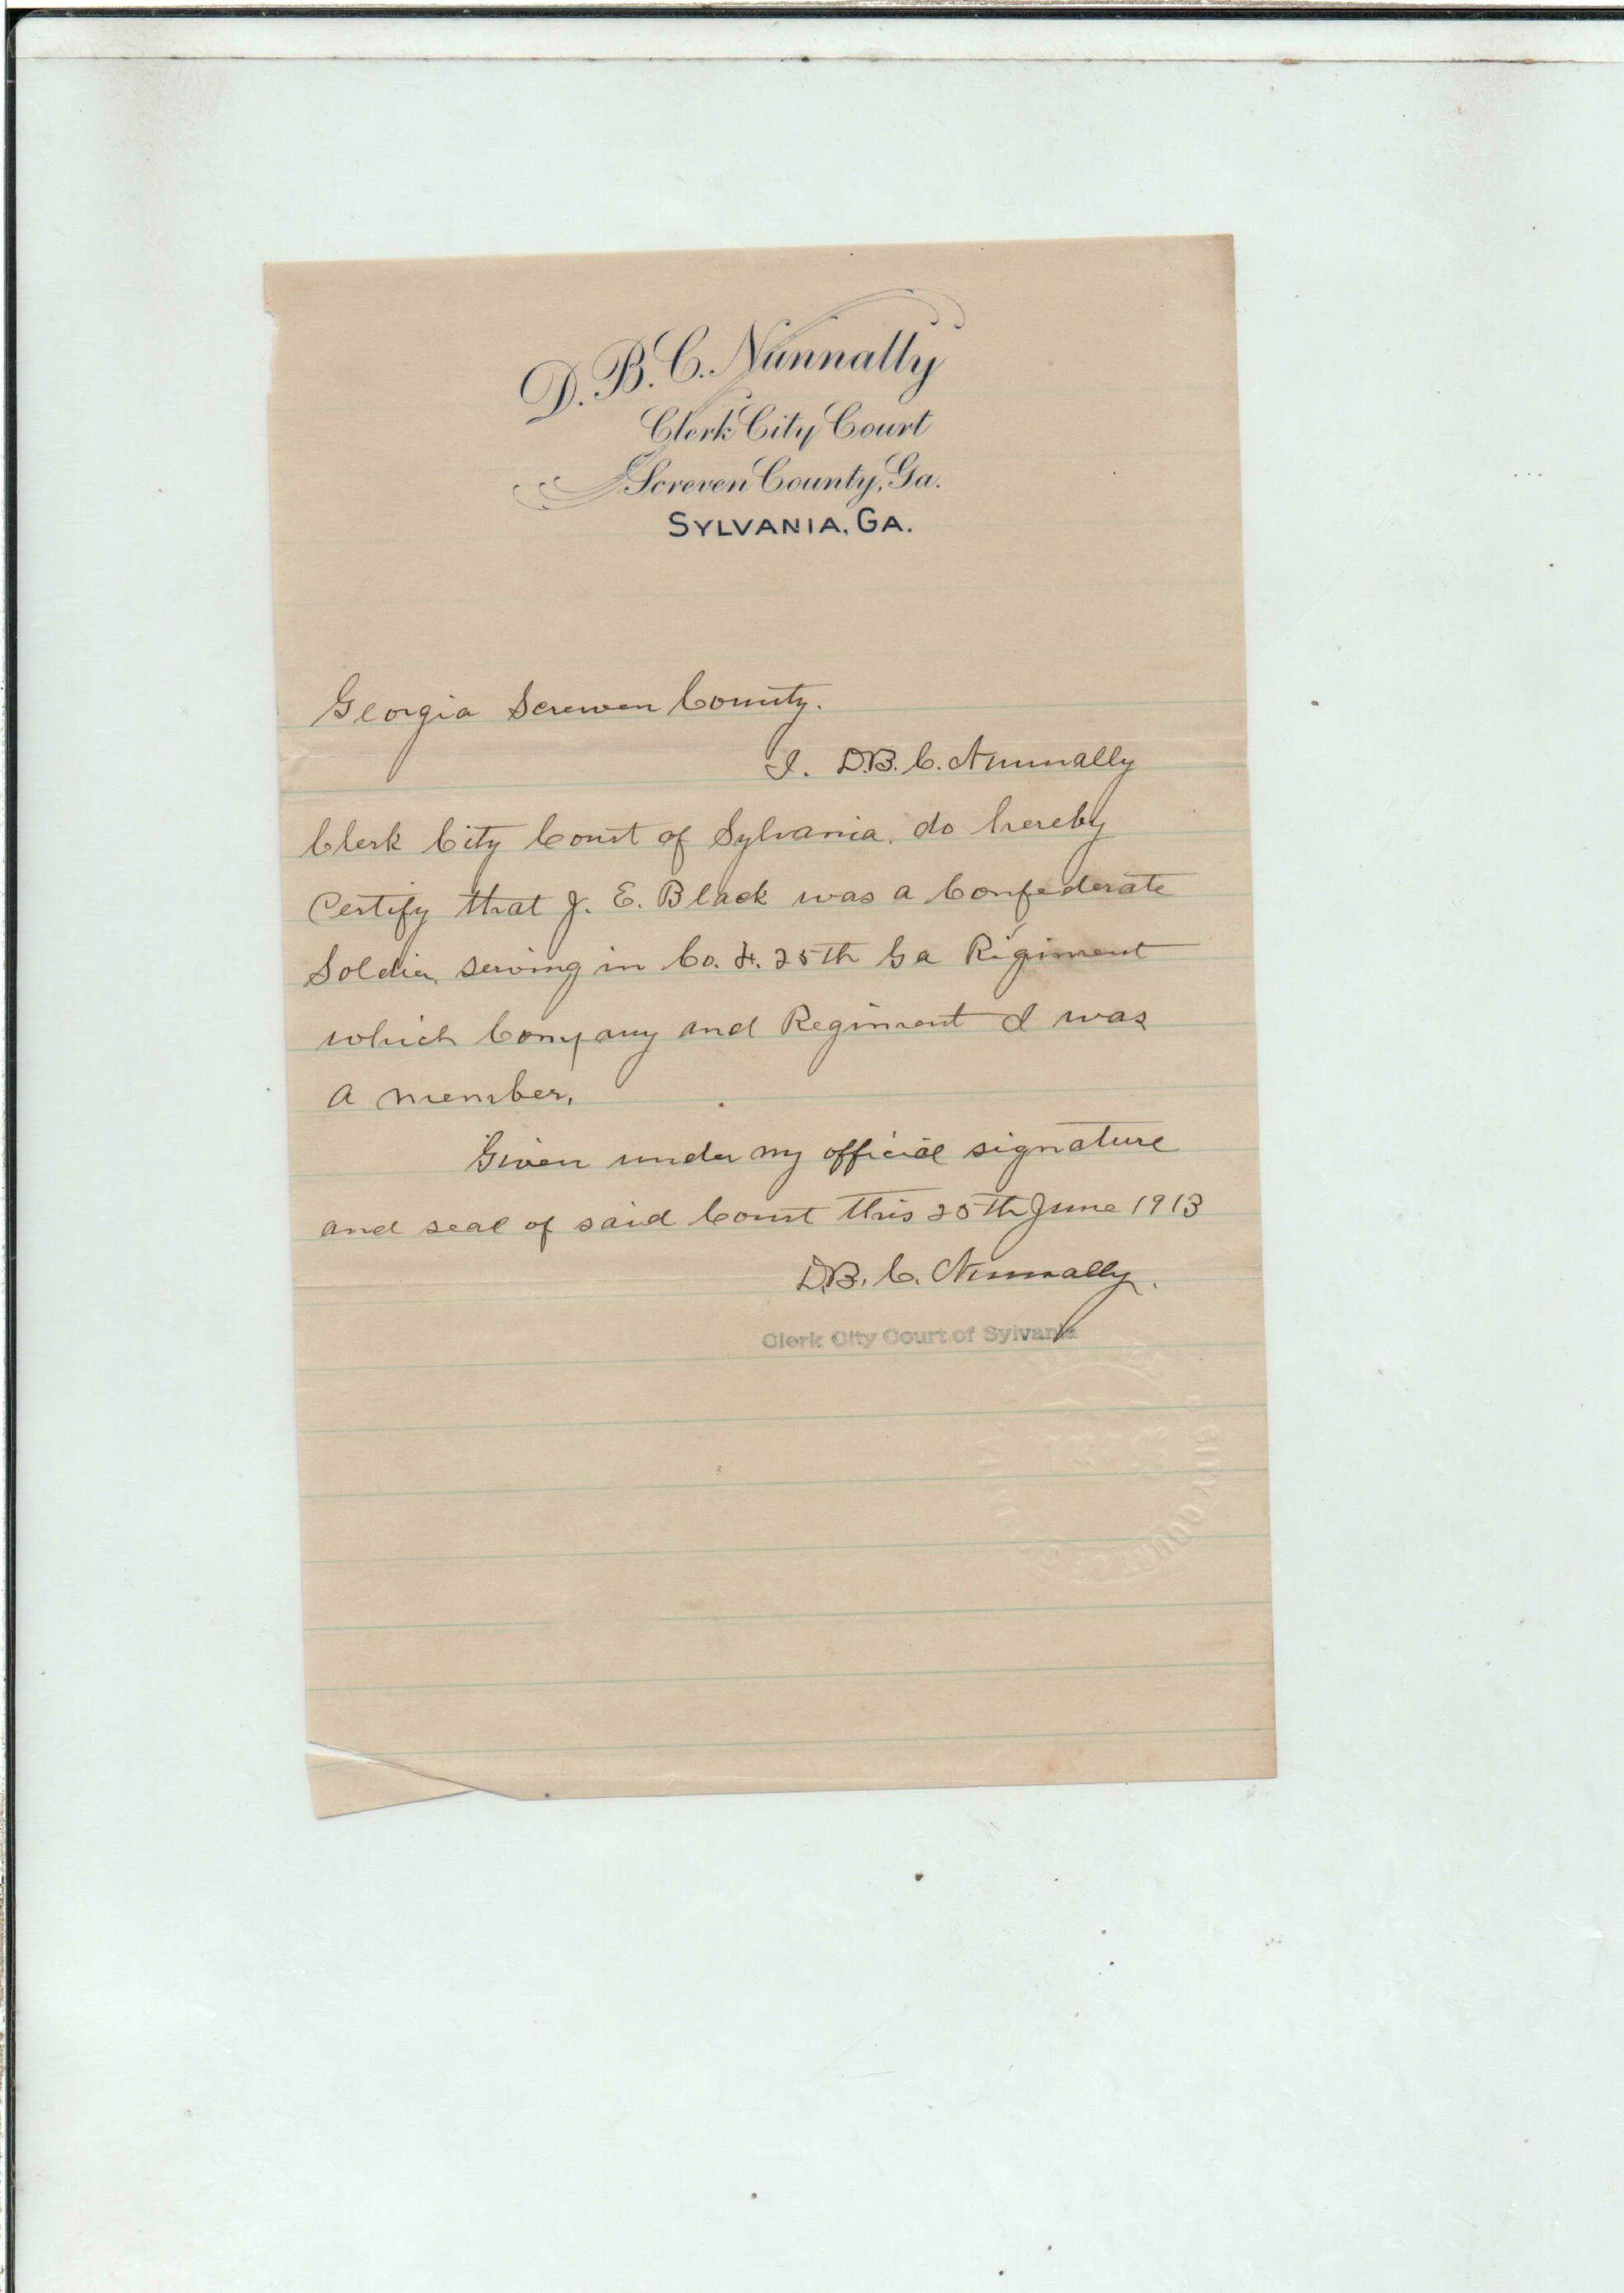 D. B. C. Nunnally
Clerk City Court
Screven County, Ga.
SYLVANIA, GA.
Georgia Screven County.
I. D.B. C. Nunnally
Clerk City Court of Sylvania, do hereby
Certify that J. E. Black was a Confederate
Soldier, serving in Co. 25th Ga Regiment
which Company and Regiment I was
a member,
Given under my official signature
and seal of said Court this 25th June 1913
D.B. C. Nunnally.
Clerk City Court of Sylvania
CITY COURT